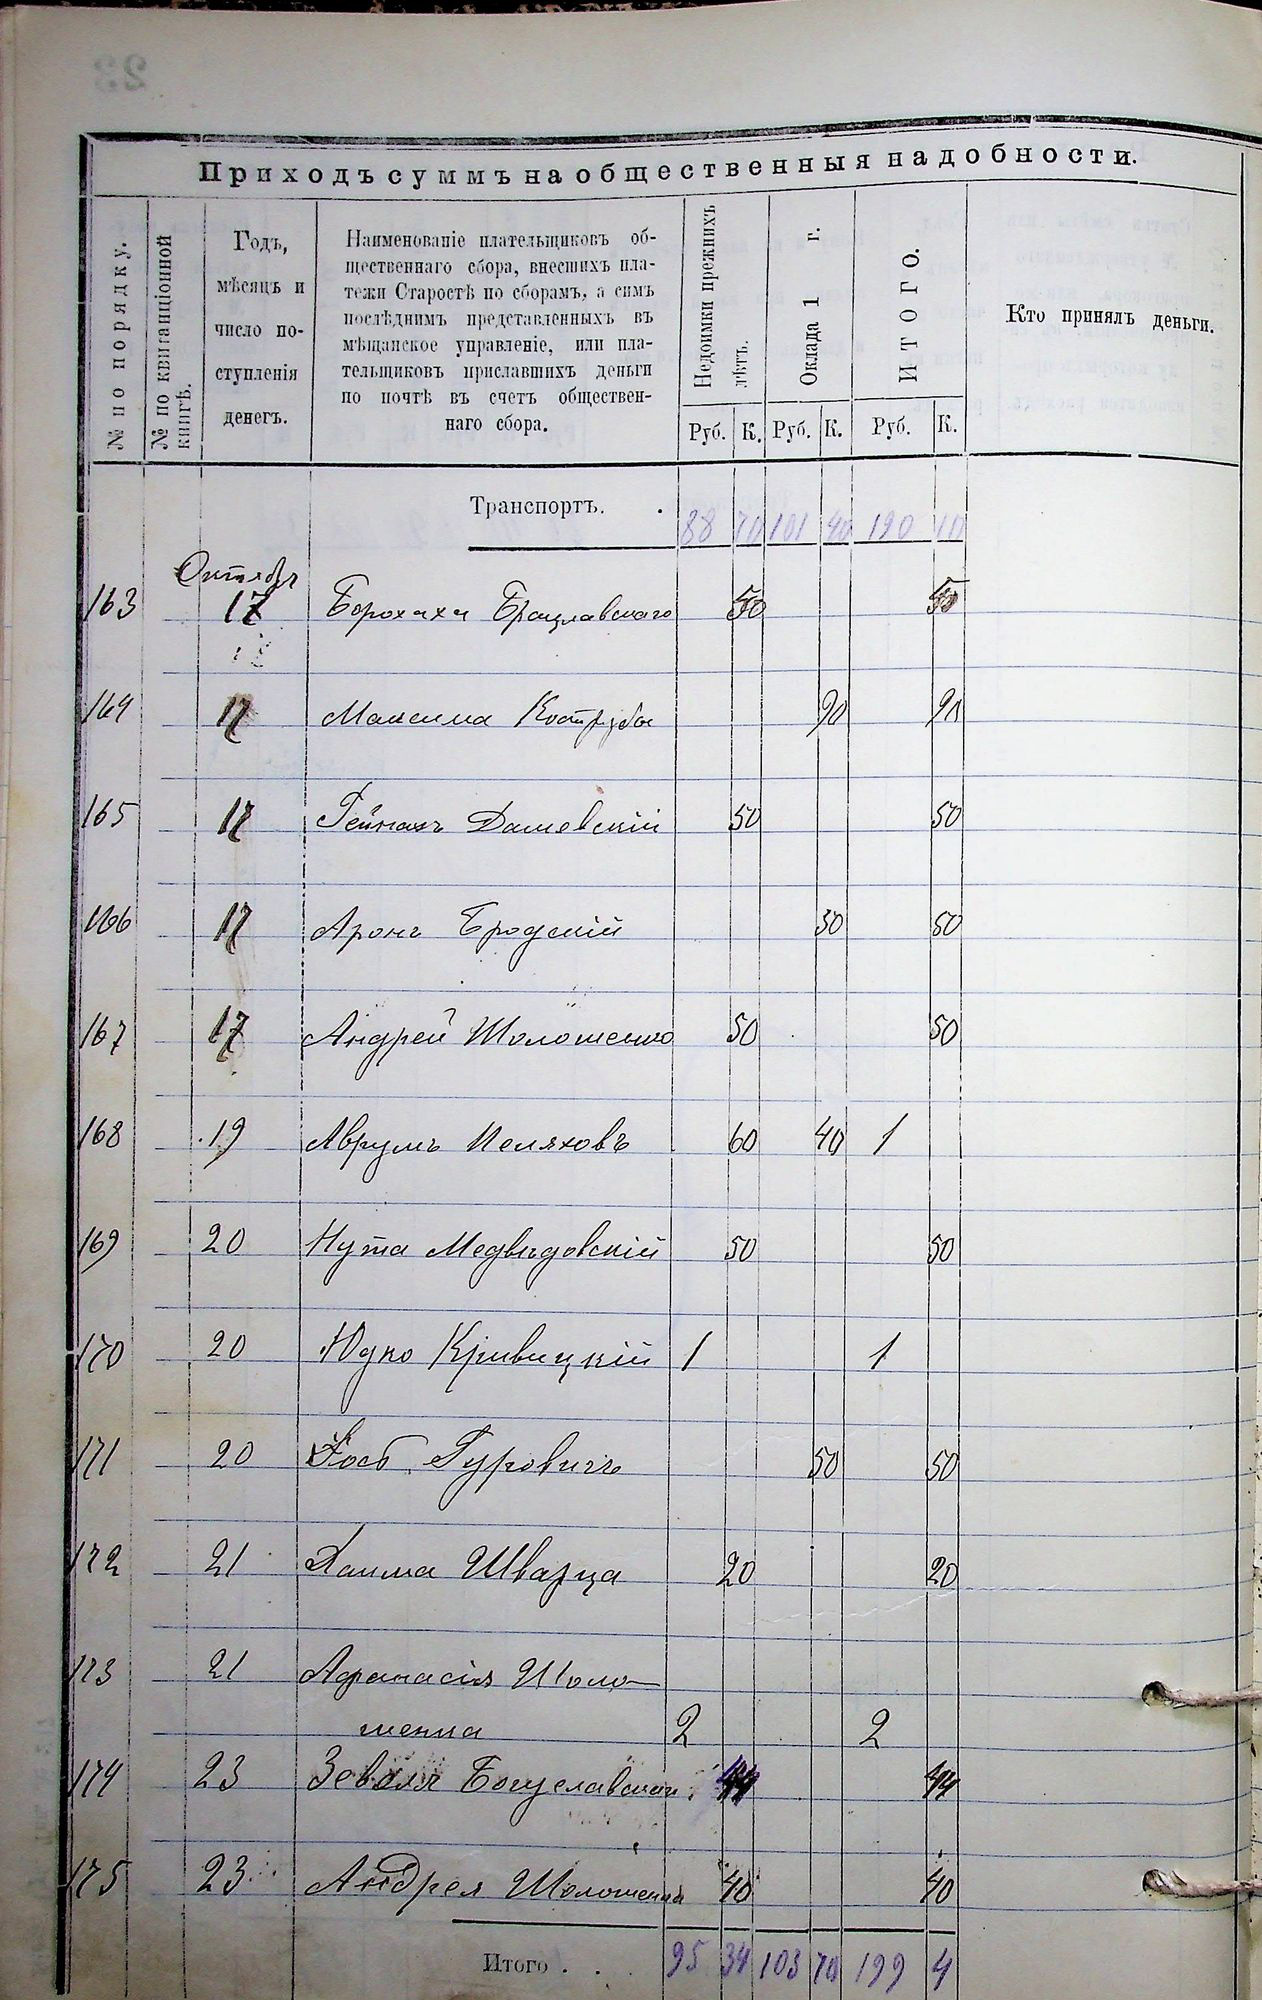 Приходъ суммъ на общественныя надобности.
№ по порядку.
№ по квитанціонной книгѣ.
Годъ,
мѣсяцъ и
число по-
ступленія
денегъ.
Наименованіе плательщиковъ об-
щественнаго сбора, внесшихъ пла-
тежи Старостѣ по сборамъ, а симъ
послѣднимъ представленныхъ въ
мѣщанское управленіе, или пла-
тельщиковъ приславшихъ деньги
по почтѣ въ счетъ обществен-
наго сбора.
Недоимки прежнихъ лѣтъ.
Оклада 1 г.
ИТОГО.
Кто принялъ деньги.
Руб. К. Руб. К. Руб. К.
Транспортъ. . 88 70 101 40 190 10
Октябр
163 17 Борохаха Брацлавскаго 50 50
164 17 Максима Кострубы 90 90
165 17 Гейнахъ Дашевскій 50 50
166 17 Аронъ Бродскій 50 50
167 17 Андрей Шоломенко 50 50
168 19 Аврумъ Пеляховъ 60 40 1
169 20 Нута Медвидовскій 50 50
170 20 Юдко Крiвицкій 1 1
171 20 Іосб Гуровичъ 50 50
172 21 Хаима Шварца 20 20
173 21 Афанасія Шоло-
менка 2 2
174 23 Зевеля Богуславскаи 44 44
175 23 Андрея Шоломенка 40 40
Итого . . 95 34 103 70 199 4